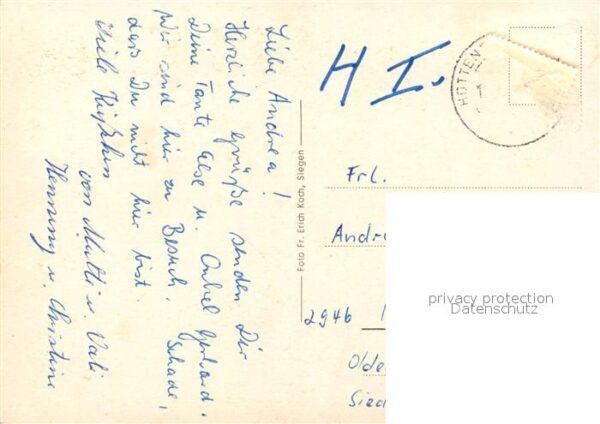 Liebe Andrea!
Herzliche Grüße senden Dir
Deine Tante Else u. Onkel Gerhard.
Wir sind hier zu Besuch. Schade,
daß Du nicht hier bist.
Viele Küßchen
von Mutti u. Vati
Henning u. Christine
Foto Fr. Erich Koch, Siegen
H I.
HÜTTEN
Frl.
Andr
2946
Olde
Sied
privacy protection
Datenschutz